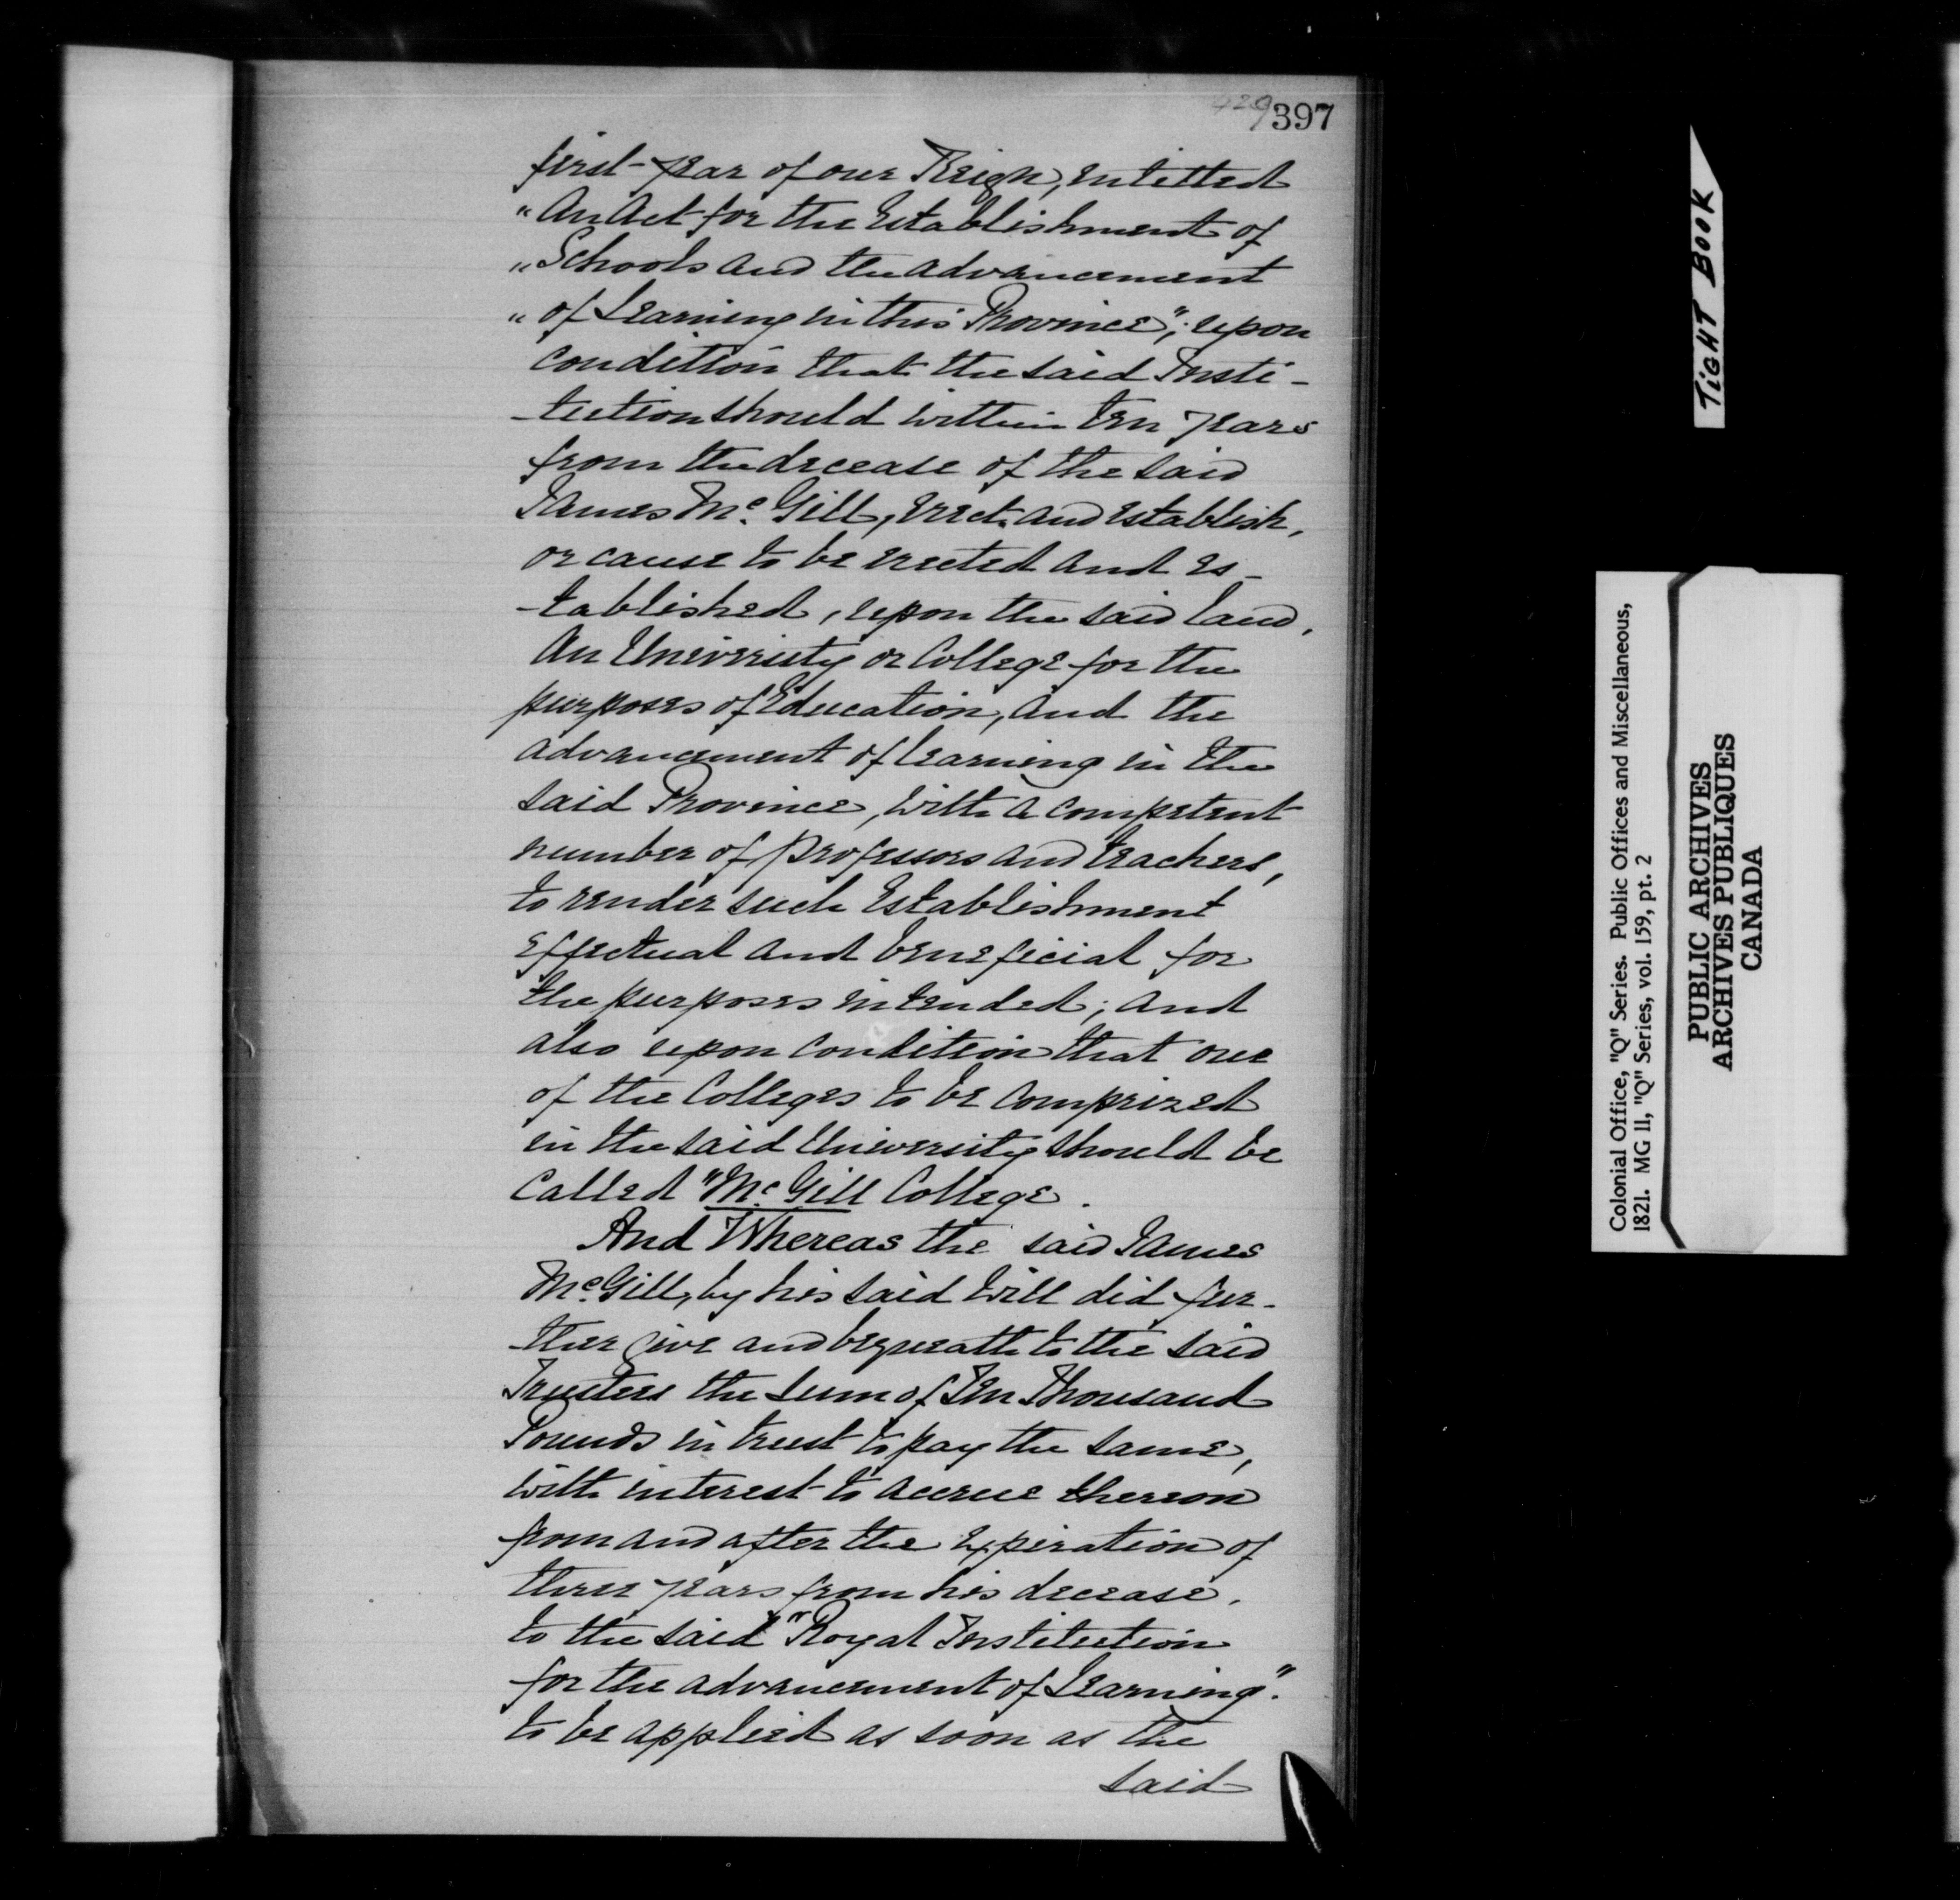 429/397
first year of our Reign, entitled
"An Act for the Establishment of
"Schools and the advancement
"of Learning in this Province"; upon
condition that the said Insti-
-tution should within ten years
from the decease of the said
James McGill, erect and establish,
or cause to be erected and es-
-tablished, upon the said land,
an University or College for the
purposes of Education, and the
advancement of learning in the
said Province, with a competent
number of professors and teachers,
to render such Establishment
effectual and beneficial for
the purposes intended; and
also upon condition that one
of the Colleges to be comprized
in the said University should be
called "McGill College.
And Whereas the said James
McGill, by his said Will did fur-
-ther give and bequeath to the said
Trustees the sum of Ten Thousand
Pounds in trust to pay the same,
with interest to accrue thereon
from and after the expiration of
three years from his decease,
to the said "Royal Institution
for the advancement of Learning".
to be applied as soon as the
said
TIGHT BOOK
Colonial Office, "Q" Series. Public Offices and Miscellaneous,
1821. MG 11, "Q" Series, vol. 159, pt. 2
PUBLIC ARCHIVES
ARCHIVES PUBLIQUES
CANADA